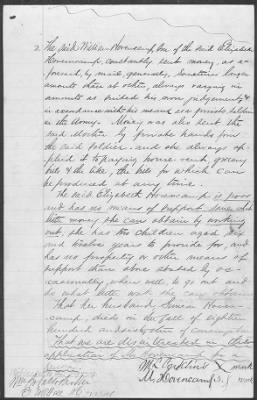 2. The said William Hovencamp, son of the said Elizabeth
Hovencamp, constantly sent money, as a-
foresaid, by mail, generally, sometimes larger
amounts than at others, always varying in
amounts as suited his own judgement &
in accordance with his means as a private soldier
in the Army. Money was also sent the
said Mother by private hands from
the said soldier. and she always ap-
plied it to paying house rent, grocery
bills & the like, the bills for which can
be produced at any time.
The said Elizabeth Hovencamp is poor
and has no means of support save what
little money she can obtain by working
out, she has two children aged
and twelve years to provide for, and
has no property or other means of
support than above stated by oc-
casionally, when well, to go out and
do what little work she can obtain
That her husband, Hoven-
camp, died in the fall of eighteen
hundred and sixty
That we are disinterested in this
application
mark
M. Hovencamp